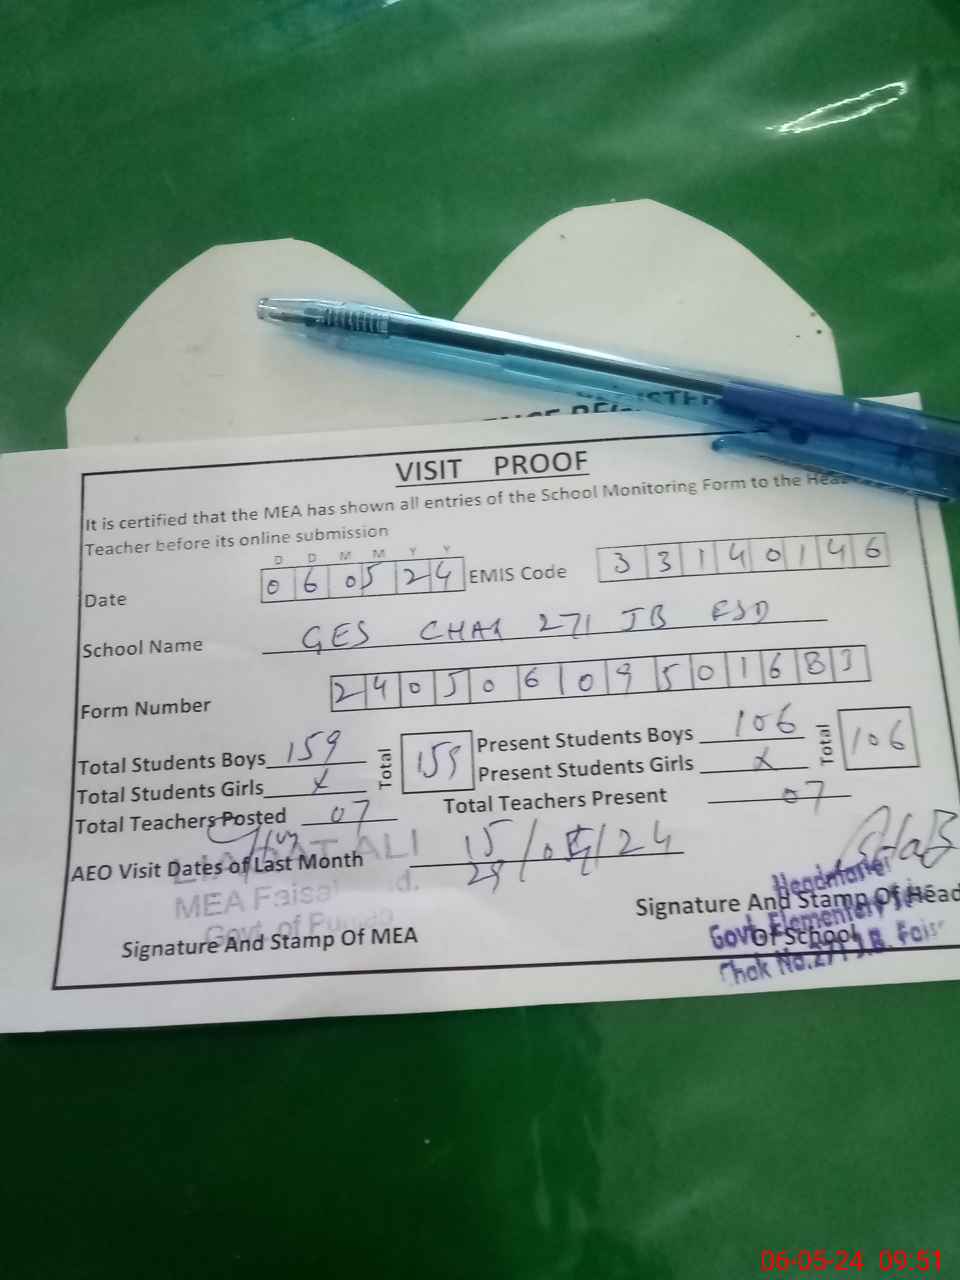 VISIT PROOF
It is certified that the MEA has shown all entries of the School Monitoring Form to the Head
Teacher before its online submission
D D M M Y Y
Date 060524 EMIS Code 33140146
School Name GES CHAK 271 JB FSD
Form Number 240506109501683
Total Students Boys 159 Total 159 Present Students Boys 106 Total 106
Total Students Girls X Present Students Girls X
Total Teachers Posted 07 Total Teachers Present 07
AEO Visit Dates of Last Month 15/ /24
LIAQAT ALI
MEA Faisal d.
Govt. of Punjab
Signature And Stamp Of MEA
Signature And Stamp Of Head
Of School
Headmaster
Govt. Elementary
Chak No.271 J.B. Fais
06-05-24 09:51